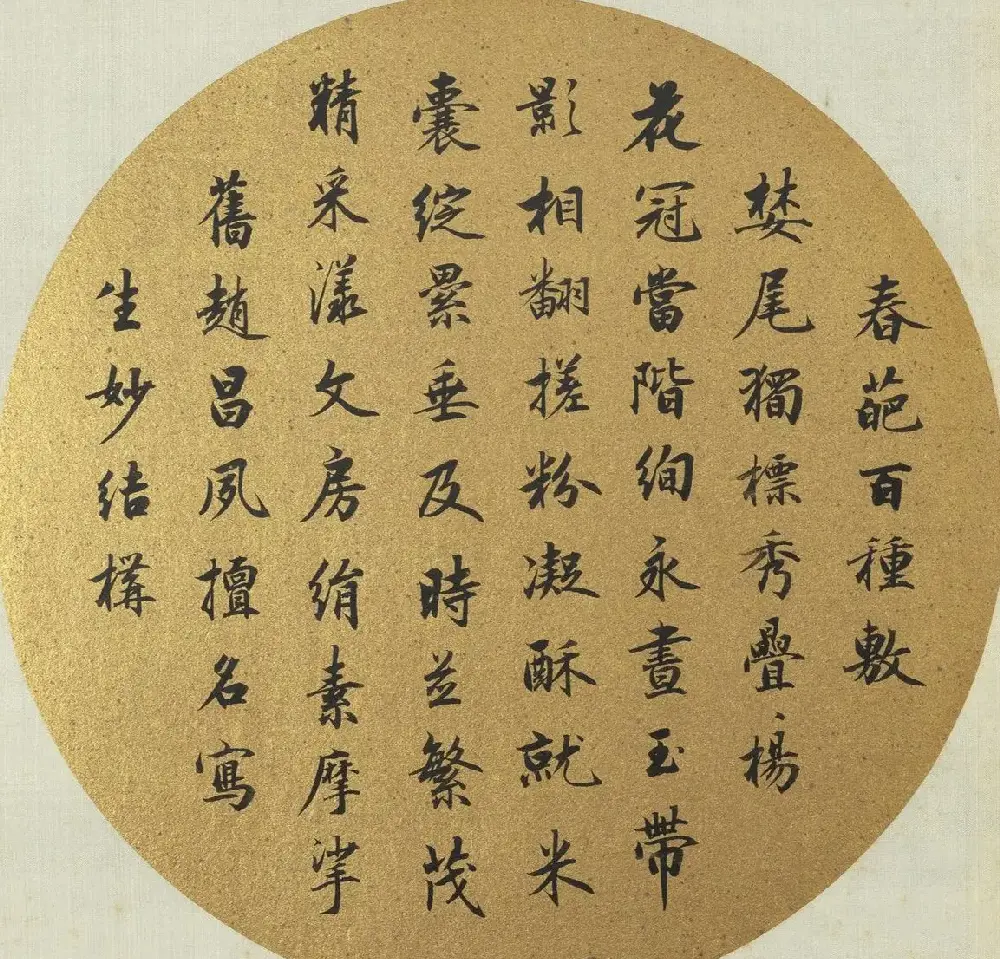 春葩百種敷
婪尾獨標秀疊楊
花冠當階絢永晝玉帶
影相翻搓粉凝酥就米
囊綻纍垂及時並繁茂
精采漾文房絹素摩挲
舊趙昌夙擅名寫
生妙結構